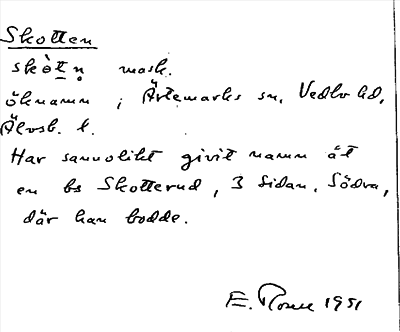 Skotten
skò̀tṇ mask.
öknamn i Ärtemarks sn, Vedbo hd,
Älvsb. l.
Har sannolikt givit namn åt
en bs Skotterud, 3 Sidan, Södra,
där han bodde.
E. Rosen 1951